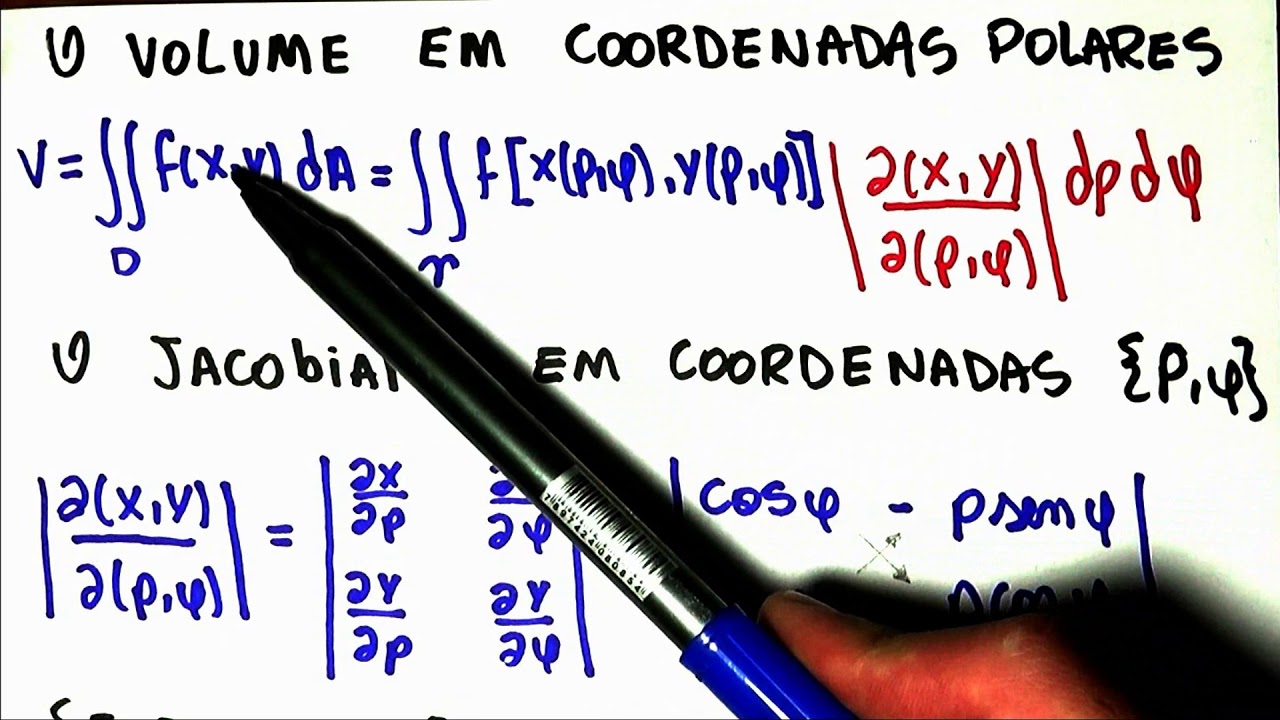 VOLUME EM COORDENADAS POLARES
V = ∬ f(x,y) dA = ∬ f[x(ρ,φ),y(ρ,φ)] |∂(x,y)/∂(ρ,φ)| dρ dφ
D r
EM COORDENADAS {ρ,φ}
|∂(x,y)/∂(ρ,φ)| = |∂x/∂ρ ∂φ ∂y/∂ρ ∂y/∂φ| |cosφ - ρ senφ|